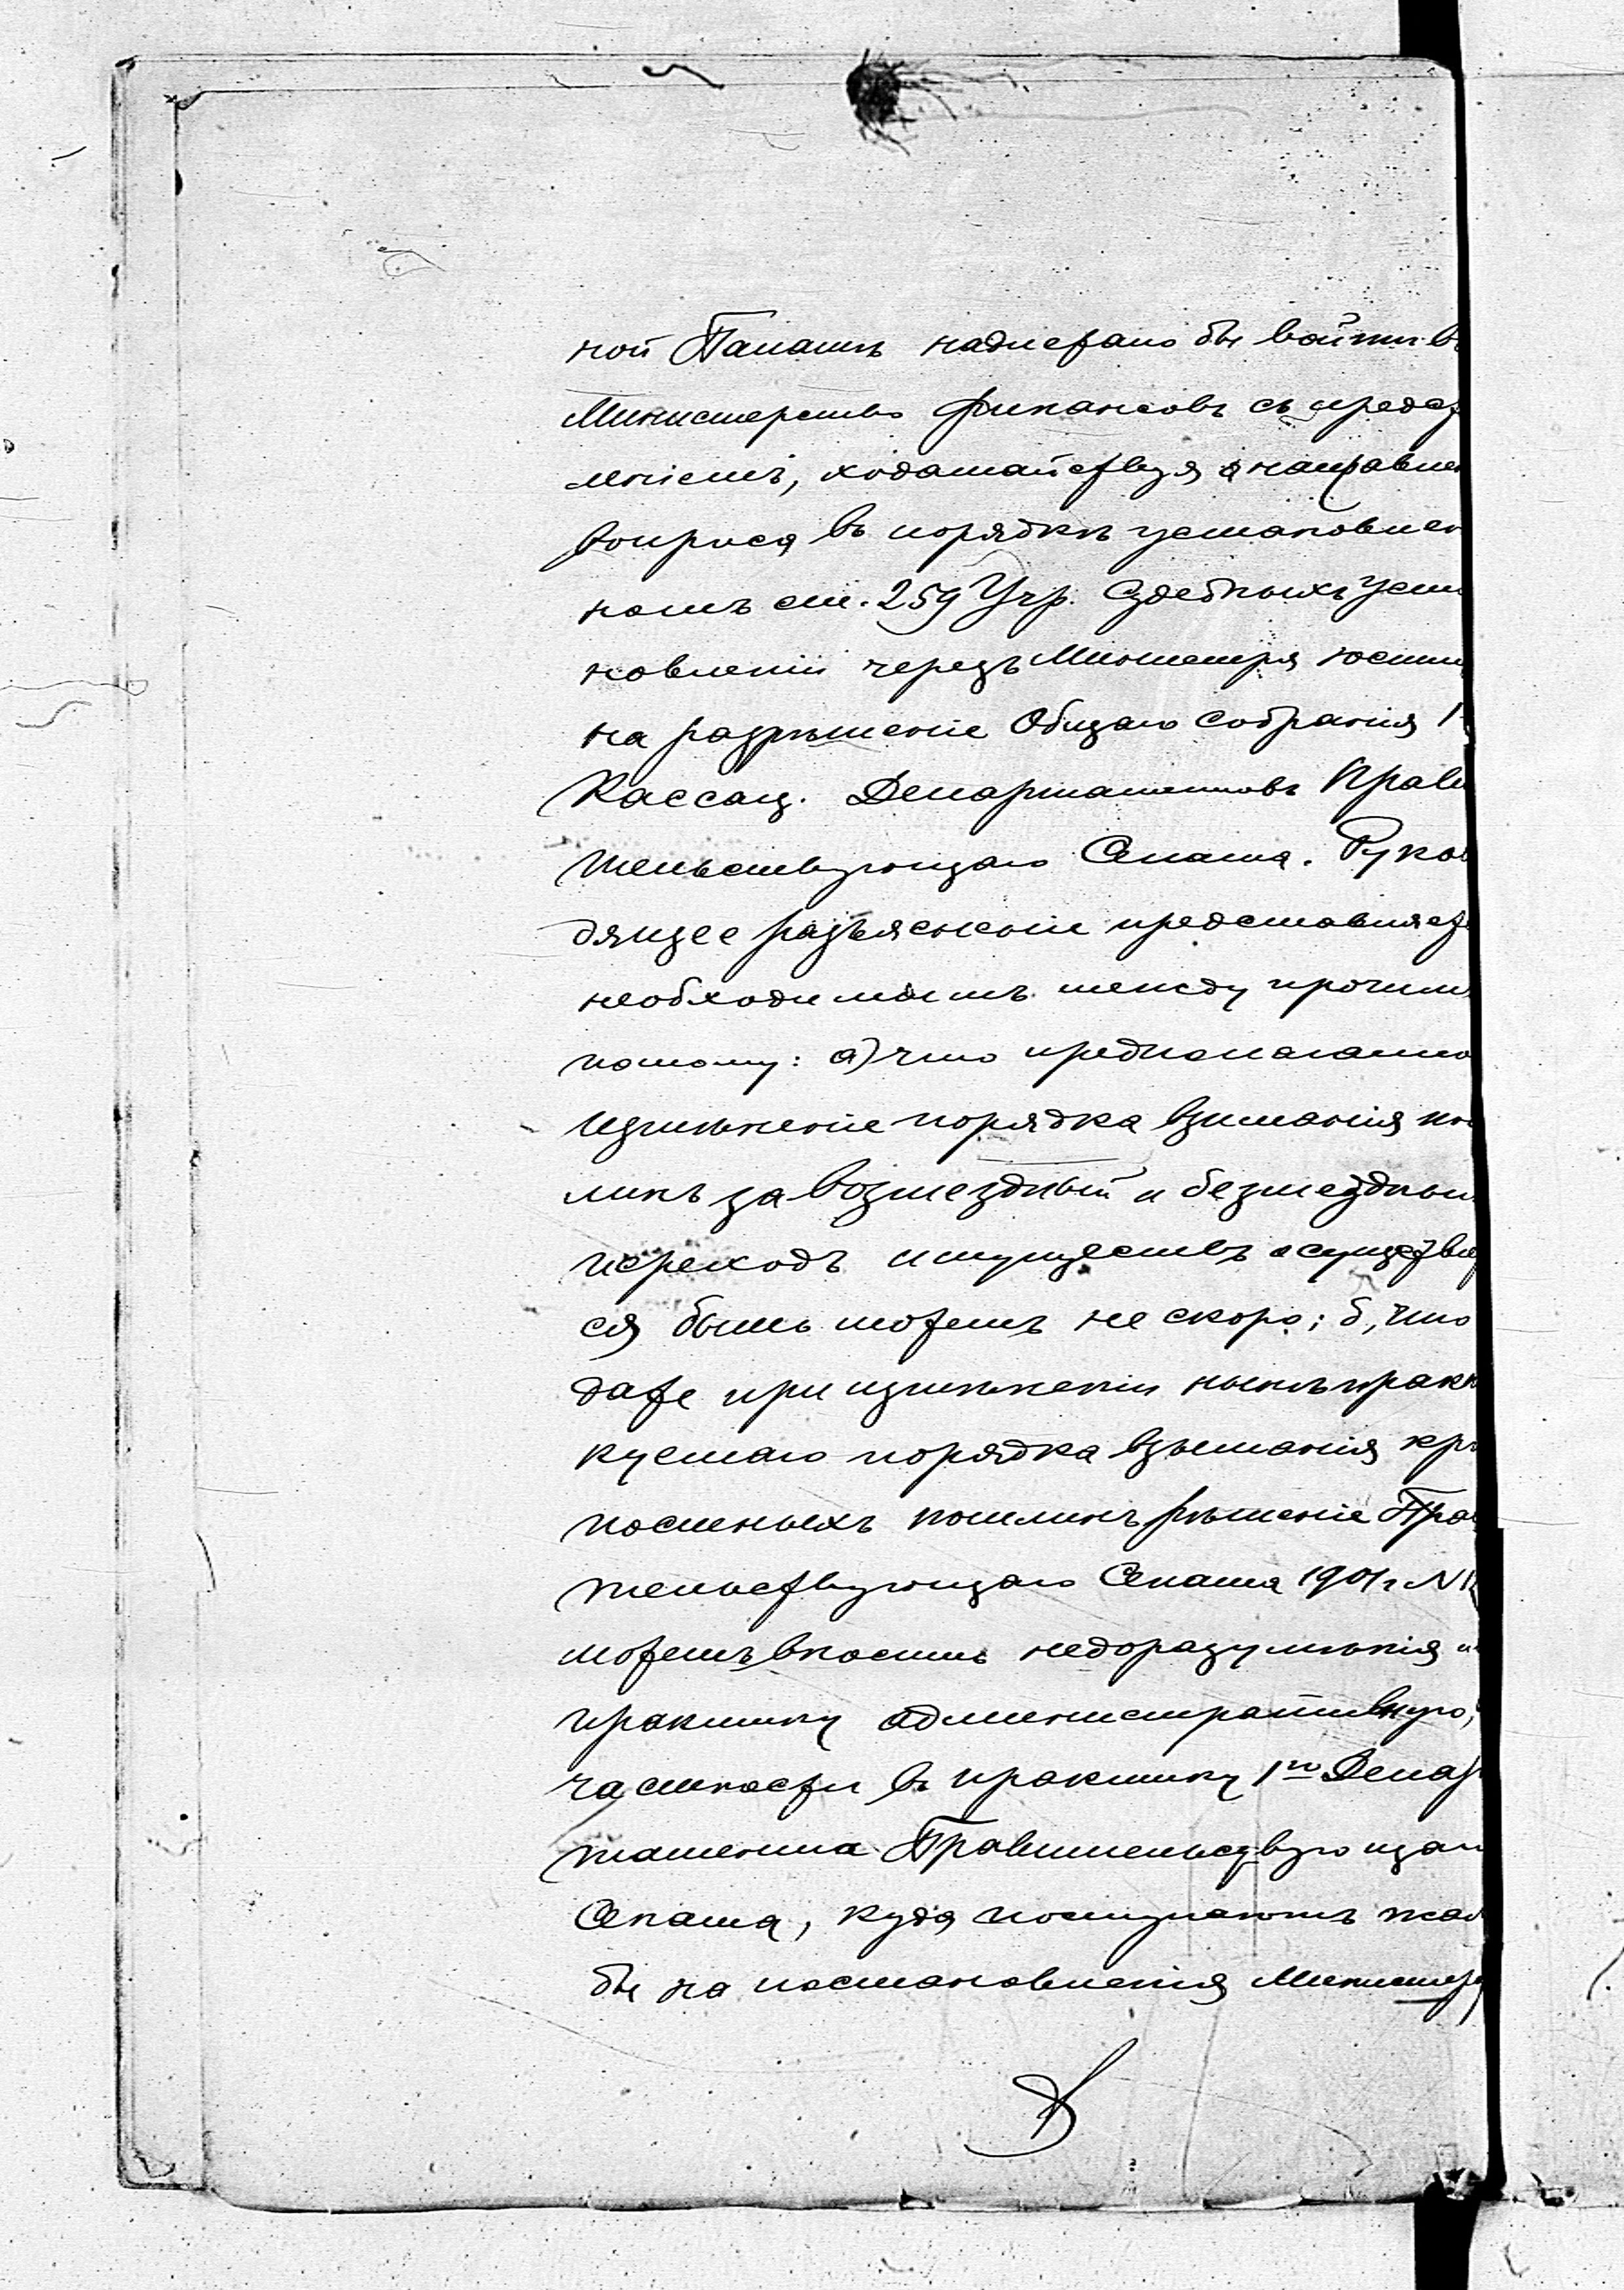 ной Палатѣ надлежало бы войти въ
Министерство Финансовъ съ предст
леніемъ, ходатайствуя о направлен
вопроса въ порядкѣ установлен
номъ ст. 259 Учр. Судебныхъ Уста
новленій черезъ Министра Юсти
на разрѣшеніе Общаго Собранія 1
Кассац. Департаментовъ Прави
тельствующаго Сената. Руков
дящее разъясненіе представляет
необходимымъ между прочимъ
потому: а) что предполагаемо
измѣненіе порядка взиманія по
линъ за возмездный и безмездный
переходъ имуществъ осуществи
ся быть можетъ не скоро; б, что
даже при измѣненіи нынѣ практ
куемаго порядка взыманія крѣ
постныхъ пошлинъ рѣшеніе Прав
тельствующаго Сената 1901 г. N 1
можетъ вносить недоразумѣнія и
практику административную,
частности въ практику 1го Депар
тамента Правительствующаго
Сената, куда поступаютъ жал
бы на постановленія Министер